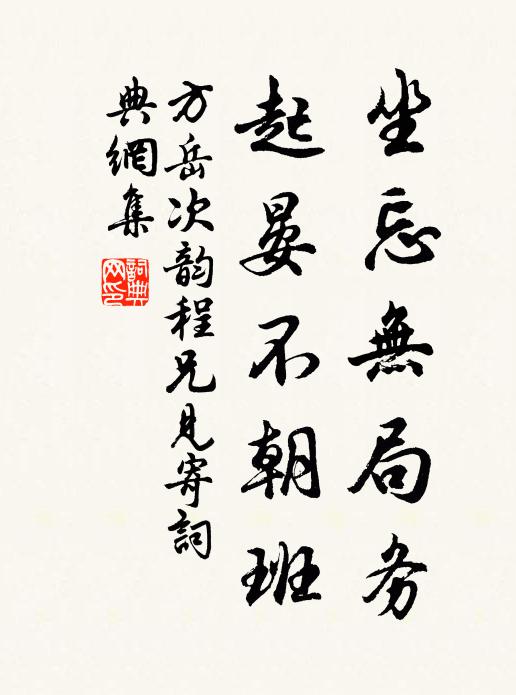 坐忘無局务
起晏不朝班
方岳次韵程兄見寄詞
典網集
詞典网印